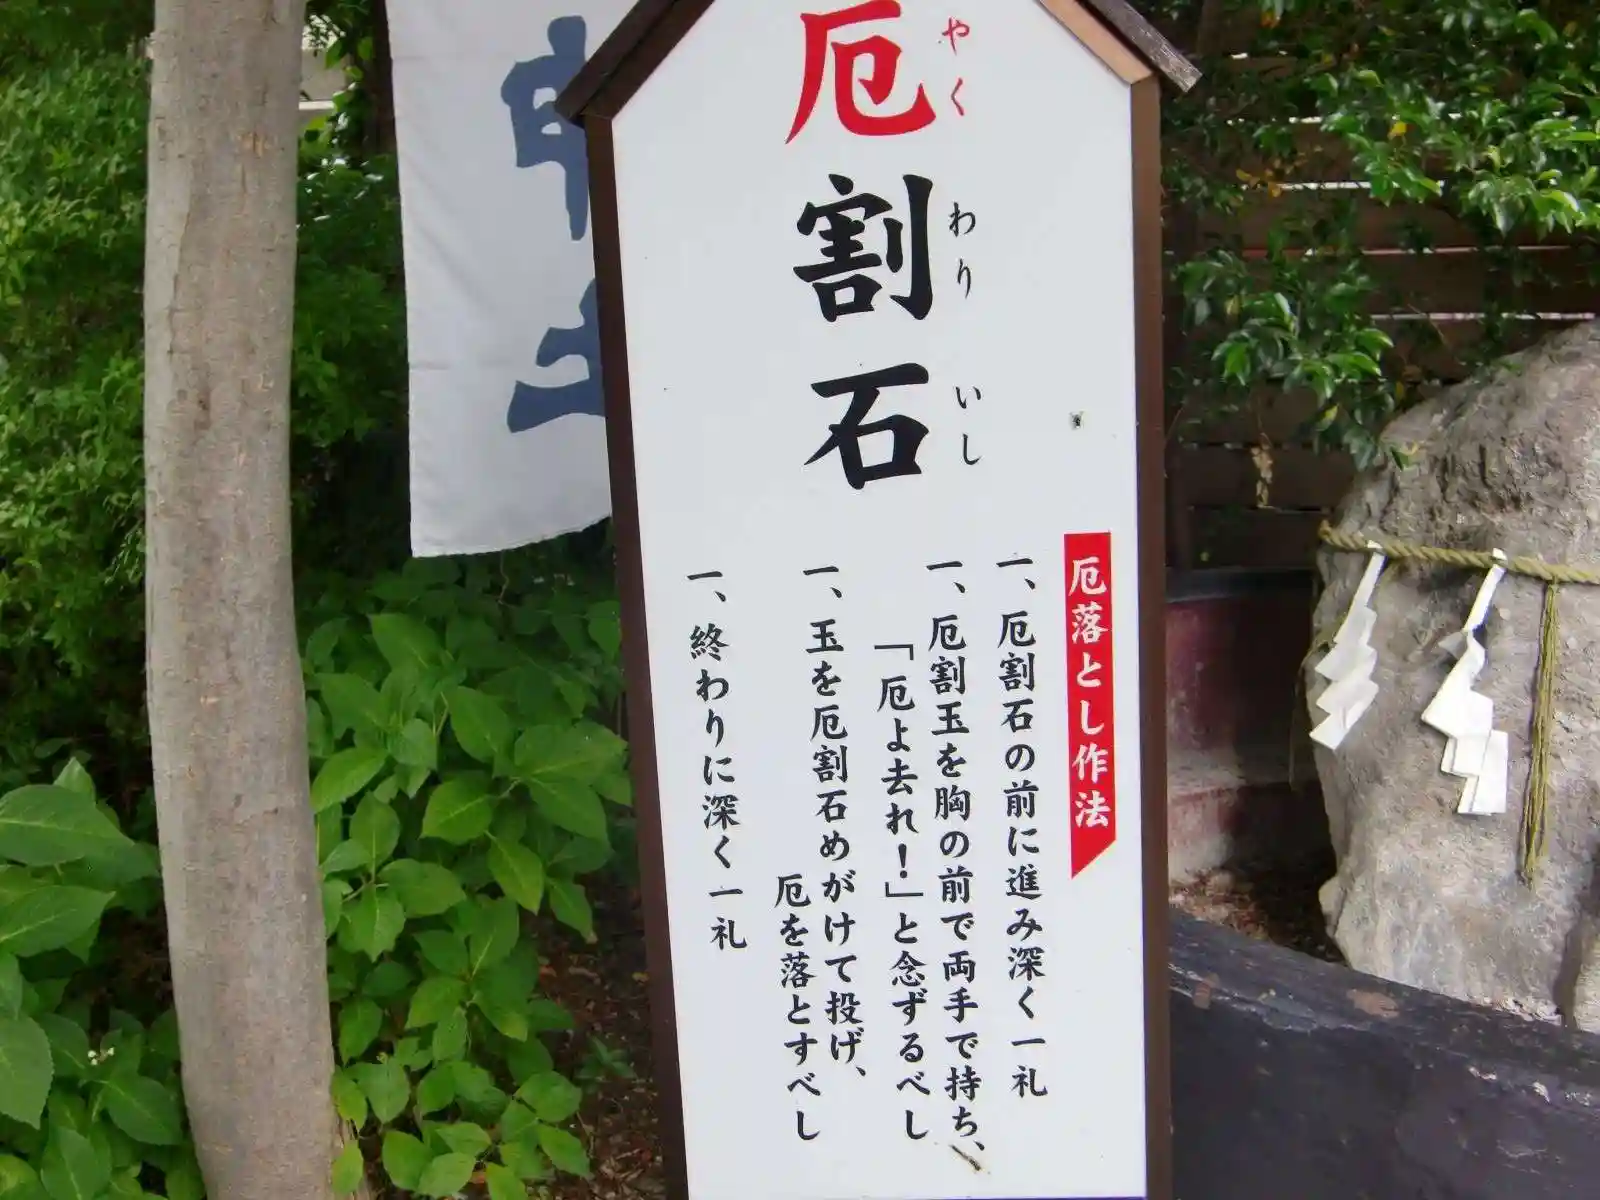 厄割石
やく
わり
いし
厄落とし作法
一、厄割石の前に進み深く一礼
一、厄割玉を胸の前で両手で持ち、
「厄よ去れ！」と念ずるべし
一、玉を厄割石めがけて投げ、
厄を落とすべし
一、終わりに深く一礼